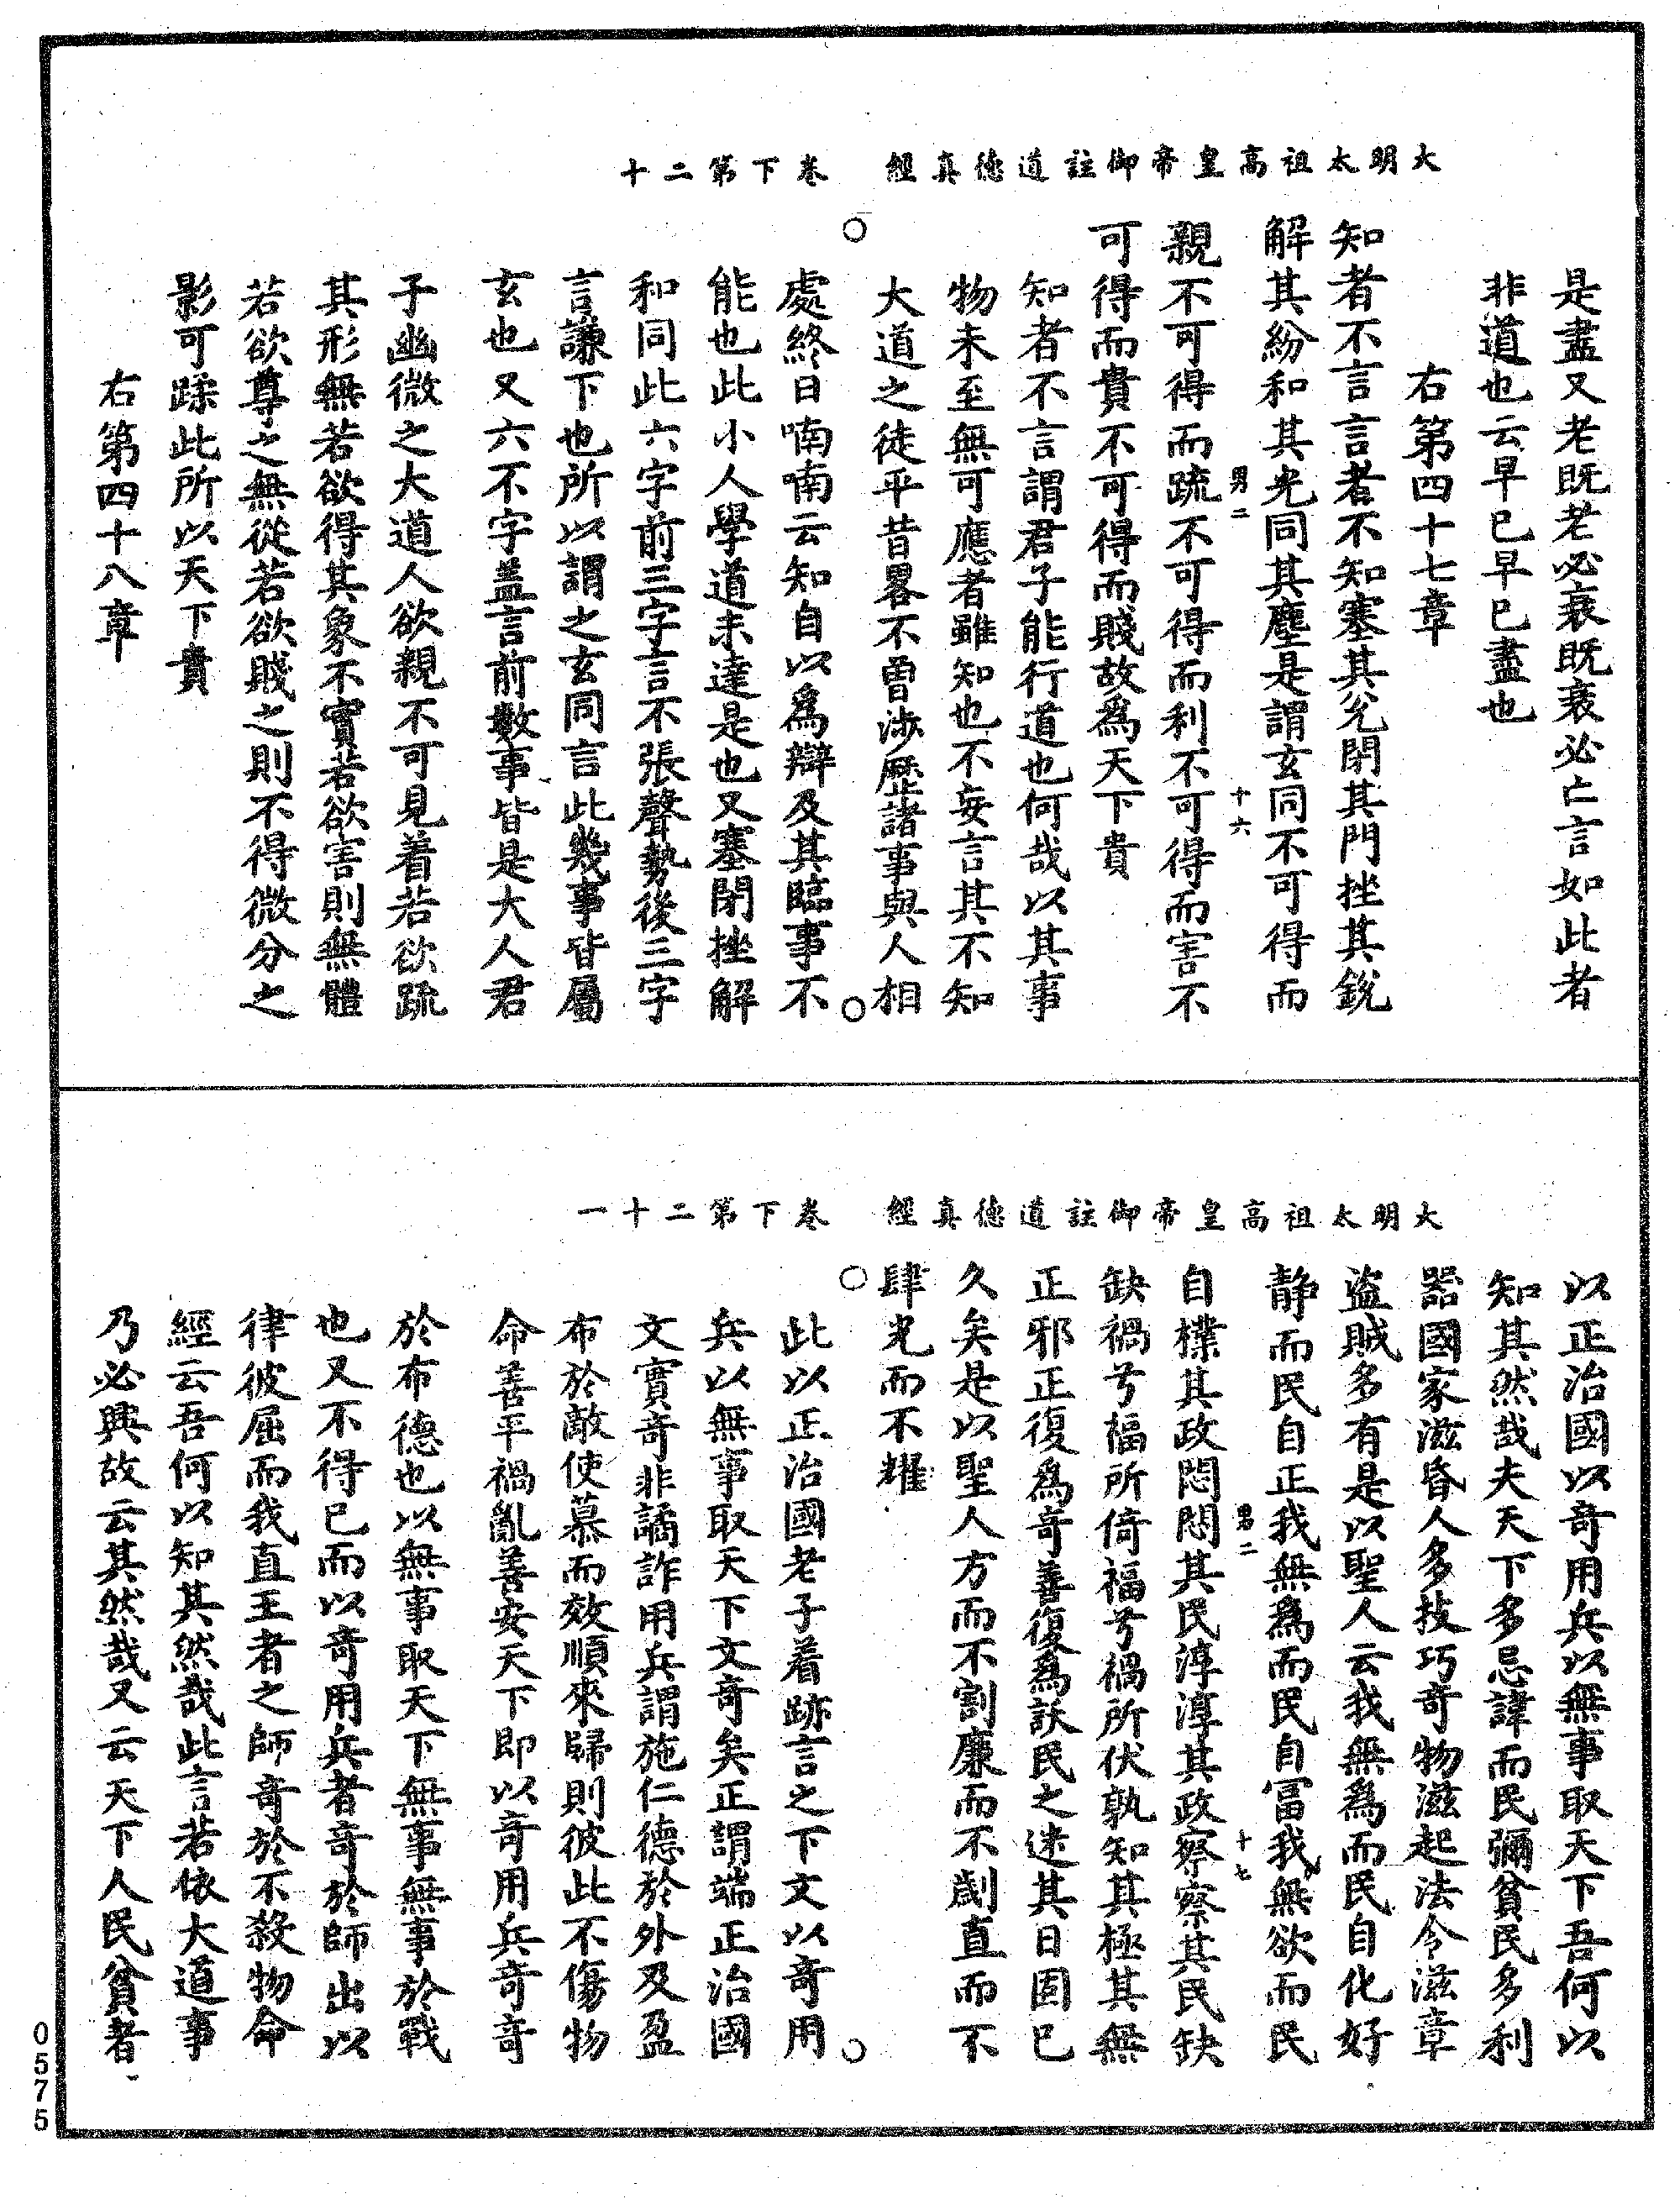 大明太祖高皇帝御註道德真經　卷下第二十
是盡又老既老必衰既衰必亡言如此者
非道也云早已早已盡也
右第四十七章
知者不言言者不知塞其兌閉其門挫其銳
解其紛和其光同其塵是謂玄同不可得而
男二　十六
親不可得而疏不可得而利不可得而害不
可得而貴不可得而賤故為天下貴
知者不言謂君子能行道也何哉以其事
物未至無可應者雖知也不妄言其不知
大道之徒平昔畧不曾涉歷諸事與人相
處終日喃喃云知自以為辯及其臨事不
能也此小人學道未達是也又塞閉挫解
和同此六字前三字言不張聲勢後三字
言謙下也所以謂之玄同言此幾事皆屬
玄也又六不字盖言前數事皆是大人君
子幽微之大道人欲親不可見着若欲疏
其形無若欲得其象不實若欲害則無體
若欲尊之無從若欲賤之則不得微分之
影可蹂此所以天下貴
右第四十八章
大明太祖高皇帝御註道德真經　卷下第二十一
以正治國以奇用兵以無事取天下吾何以
知其然哉夫天下多忌諱而民彌貧民多利
器國家滋昏人多技巧奇物滋起法令滋章
盜賊多有是以聖人云我無為而民自化好
静而民自正我無為而民自富我無欲而民
男二　十七
自樸其政悶悶其民淳淳其政察察其民缺
缺禍兮福所倚福兮禍所伏孰知其極其無
正邪正復為奇善復為訞民之迷其日固已
久矣是以聖人方而不割廉而不劌直而不
肆光而不耀
此以正治國老子着跡言之下文以奇用
兵以無事取天下文奇矣正謂端正治國
文實奇非譎詐用兵謂施仁德於外及盈
布於敵使慕而效順來歸則彼此不傷物
命善平禍亂善安天下即以奇用兵奇奇
於布德也以無事取天下無事無事於戰
也又不得已而以奇用兵者奇於師出以
律彼屈而我直王者之師奇於不殺物命
經云吾何以知其然哉此言若依大道事
乃必興故云其然哉又云天下人民貧者
0575